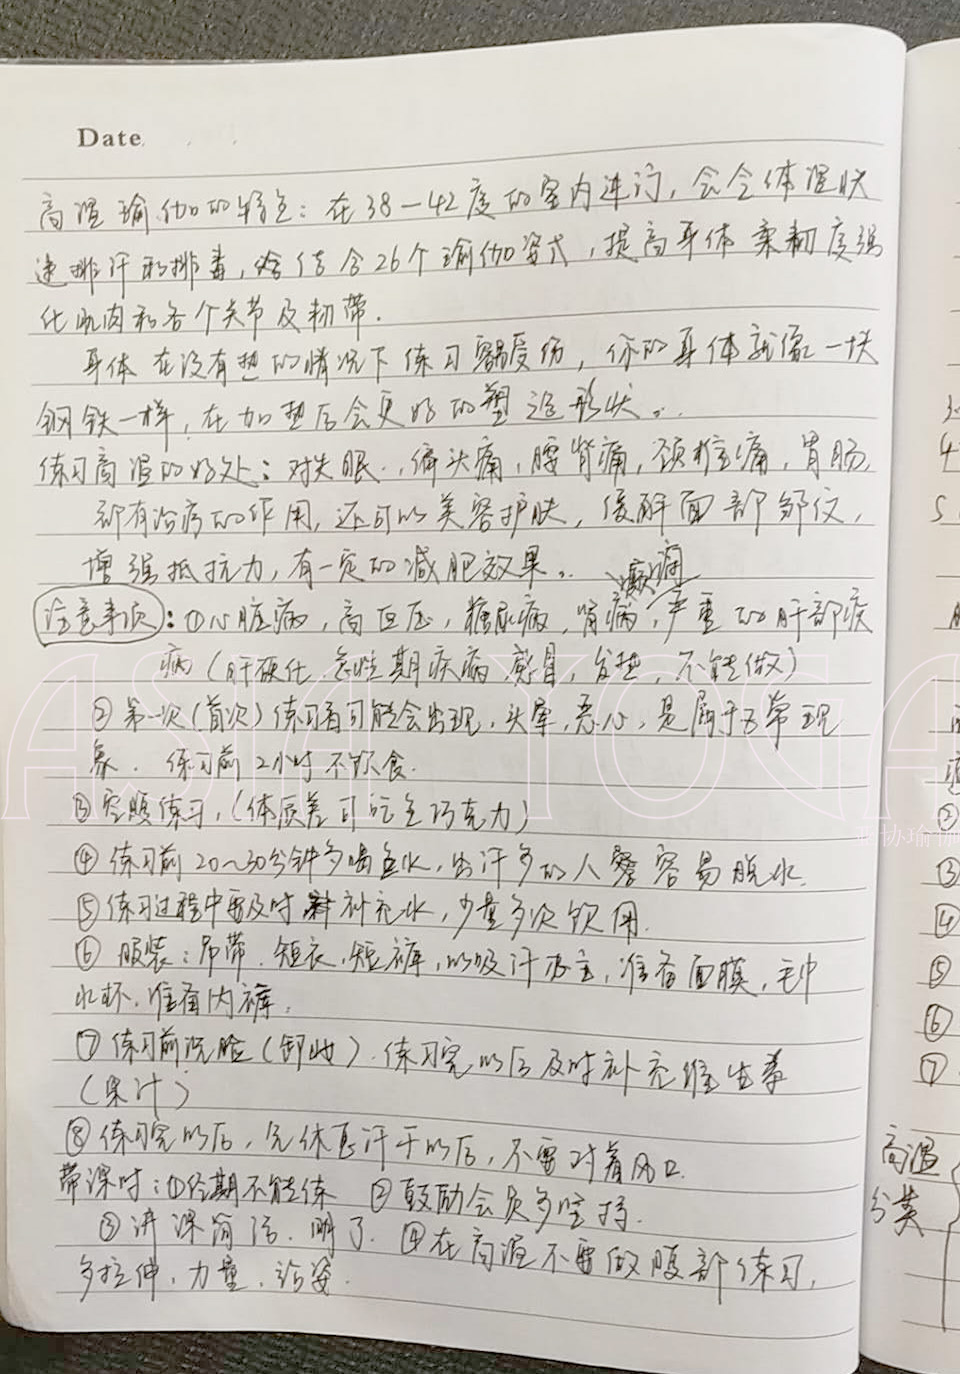 Date
高温瑜伽的特色：在38—42度的室内进行，会令体温快
速排汗和排毒，结合26个瑜伽姿式，提高身体柔韧度强
化肌肉和各个关节及韧带.
身体在没有热的情况下练习容易受伤，你的身体就像一块
钢铁一样，在加热后会更好的塑造形状。
练习高温的好处：对失眠、偏头痛，腰背痛，颈椎痛，胃肠，
都有治疗的作用，还可以美容护肤，缓解面部皱纹，
增强抵抗力，有一定的减肥效果。
癫痫
注意事项：①心脏病，高血压，糖尿病，肾病，严重的肝部疾
病（肝硬化、急性期疾病、感冒，发热，不能做）
②第一次（首次）练习者可能会出现，头晕，恶心，是属于正常现
象．练习前2小时不饮食．
③空腹练习，（体质差可吃色巧克力）
④练习前20～30分钟多喝盐水，出汗多的人容易脱水．
⑤练习过程中要及时补充水，少量多次饮用．
⑥服装：吊带、短衣、短裤，以吸汗为主，准备面膜，毛巾
水杯、准备内裤．
⑦练习前洗脸（卸妆）．练习完以后及时补充维生素
（果汁）
⑧练习完以后，先休息汗干以后，不要对着风口．
带课时：①经期不能练 ②鼓励会员多坚持．
③讲课简洁、明了．④在高温不要做腹部练习，
多拉伸、力量、站姿．
ASIA YOGA
亚协瑜伽
4
5
②
③
④
⑤
⑥
⑦
高温
分类